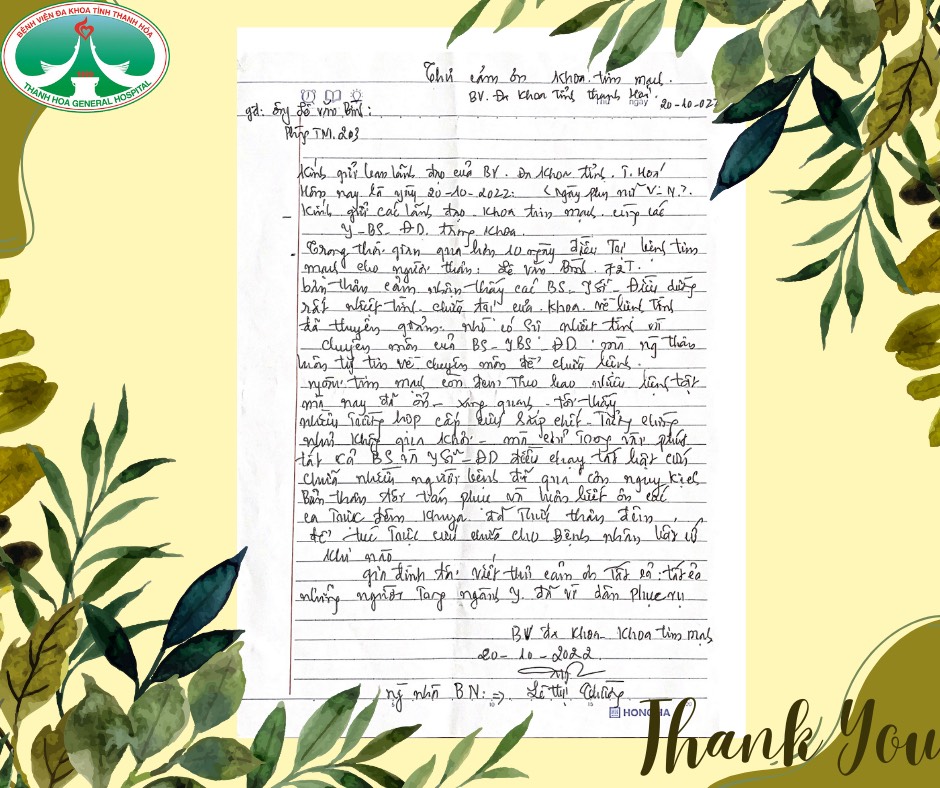 BỆNH VIỆN ĐA KHOA TỈNH THANH HÓA
THANH HOA GENERAL HOSPITAL
Thư cảm ơn Khoa tim mạch.
BV. Đa Khoa Tỉnh Thanh Hoá.
ngày 20-10-022
gđ: ông Lê Văn Bình:
Phòng TM.203
Kính gửi ban lãnh đạo của BV. Đa Khoa tỉnh. T. Hoá
Hôm nay là ngày 20-10-2022: (Ngày phụ nữ V-N.).
- Kính gửi các lãnh đạo. Khoa tim mạch. cùng các
Y-BS-ĐD. trong Khoa.
- Trong thời gian qua hơn 10 ngày điều Tại bệnh tim
mạch cho người thân: Lê Văn Bình. 72T.
bản thân cảm nhận thấy các BS-Y Sĩ-Điều dưỡng
rất nhiệt tình chữa của Khoa. về bệnh Tình
đã thuyên giảm. nhờ có Sự nhiệt tình vì
chuyên môn của BS-YBS-ĐD. mà ng thân
luôn tự tin về chuyên môn để chữa bệnh.
ngoài tim mạch còn đem Theo bao nhiêu bệnh tật
mà nay đã ổn - xung quanh - tôi thấy
nhiều Trường hợp cấp cứu Sắp chết - Tưởng chừng
như không qua khỏi - mà chỉ Trong vài phút
tất cả BS và Y Sĩ-ĐD đều chạy tất bật cứu
chữa nhiều người bệnh để qua cơn nguy kịch
Bản thân tôi Khâm phục và luôn biết ơn các
ca Trực đêm khuya. đã Thức thâu đêm,
để túc Trực cứu chữa cho Bệnh nhân bất cứ
khi nào
gia đình tôi viết thư cảm ơn Tất cả: tất cả
những người Trong ngành Y. đã vì dân phục vụ
BV Đa Khoa - Khoa tim mạch
20-10-2022.
ng nhà BN: => Lê Thị
HONG HA
Thank You